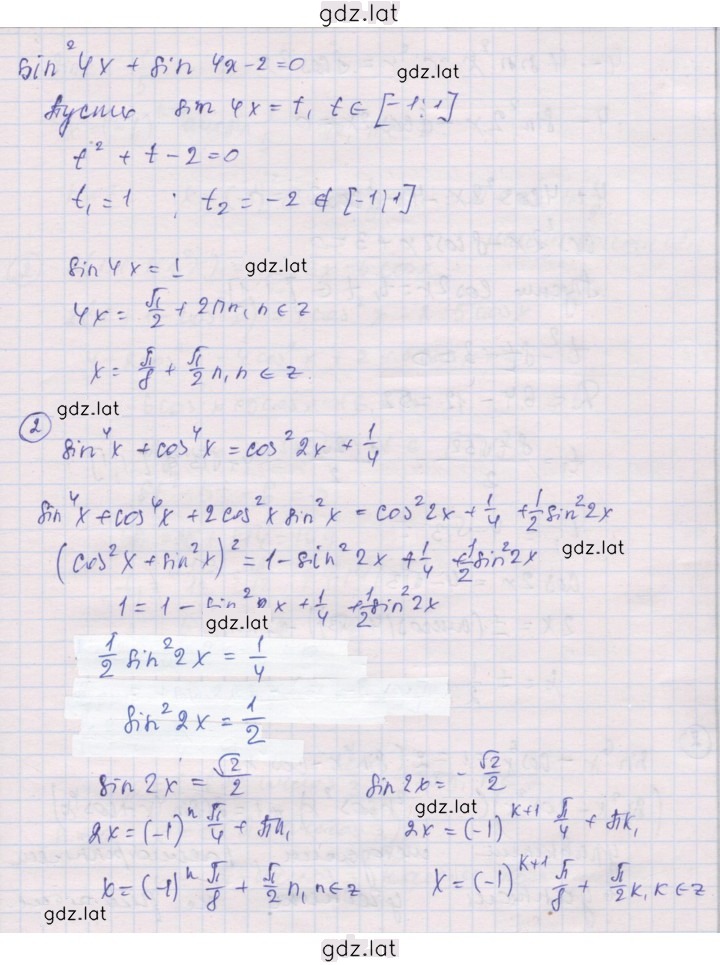 gdz.lat
sin² 4x + sin 4x - 2 = 0
gdz.lat
Пусть sin 4x = t, t ∈ [-1; 1]
t² + t - 2 = 0
t₁ = 1 ; t₂ = -2 ∉ [-1; 1]
sin 4x = 1
gdz.lat
4x = π/2 + 2πn, n ∈ z
x = π/8 + π/2 n, n ∈ z.
gdz.lat
② sin⁴x + cos⁴x = cos² 2x + 1/4
sin⁴x + cos⁴x + 2cos²x sin²x = cos² 2x + 1/4 + 1/2 sin² 2x
(cos²x + sin²x)² = 1 - sin² 2x + 1/4 + 1/2 sin² 2x
gdz.lat
1 = 1 - sin² x + 1/4 + 1/2 sin² 2x
gdz.lat
1/2 sin² 2x = 1/4
sin² 2x = 1/2
sin 2x = √2/2 sin 2x = - √2/2
gdz.lat
2x = (-1)ⁿ π/4 + πn, 2x = (-1)ᵏ⁺¹ π/4 + πk,
x = (-1)ⁿ π/8 + π/2 n, n ∈ z x = (-1)ᵏ⁺¹ π/8 + π/2 k, k ∈ z
gdz.lat
gdz.lat